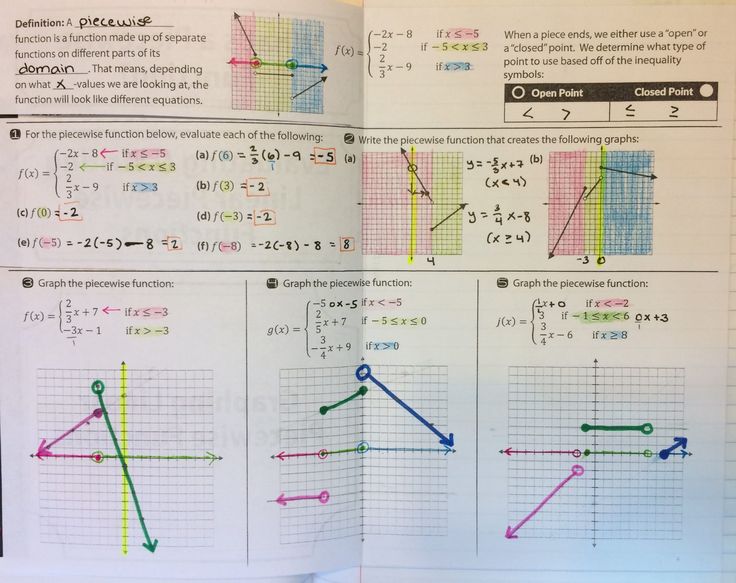 Definition: A piecewise
function is a function made up of separate
functions on different parts of its
domain. That means, depending
on what x -values we are looking at, the
function will look like different equations.
f(x) = { -2x - 8 if x ≤ -5
-2 if -5 < x ≤ 3
2/3 x - 9 if x > 3
When a piece ends, we either use a "open" or
a "closed" point. We determine what type of
point to use based off of the inequality
symbols:
Open Point Closed Point
< > ≤ ≥
1 For the piecewise function below, evaluate each of the following:
f(x) = { -2x - 8 if x ≤ -5
-2 if -5 < x ≤ 3
2/3 x - 9 if x > 3
(a) f(6) = 2/3 (6) - 9 = -5
1
(b) f(3) = -2
(c) f(0) = -2
(d) f(-3) = -2
(e) f(-5) = -2(-5) - 8 = 2
(f) f(-8) = -2(-8) - 8 = 8
2 Write the piecewise function that creates the following graphs:
(a)
y = -5/3 x + 7
(x < 4)
y = 3/4 x - 8
(x ≥ 4)
4
(b)
-3 0
3 Graph the piecewise function:
f(x) = { 2/3 x + 7 if x ≤ -3
-3x - 1 if x > -3
1
4 Graph the piecewise function:
g(x) = { -5 0x - 5 if x < -5
2/5 x + 7 if -5 ≤ x ≤ 0
-3/4 x + 9 if x > 0
5 Graph the piecewise function:
if x < -2
3 if -1 ≤ x < 6 0x + 3
1
3/4 x - 6 if x ≥ 8